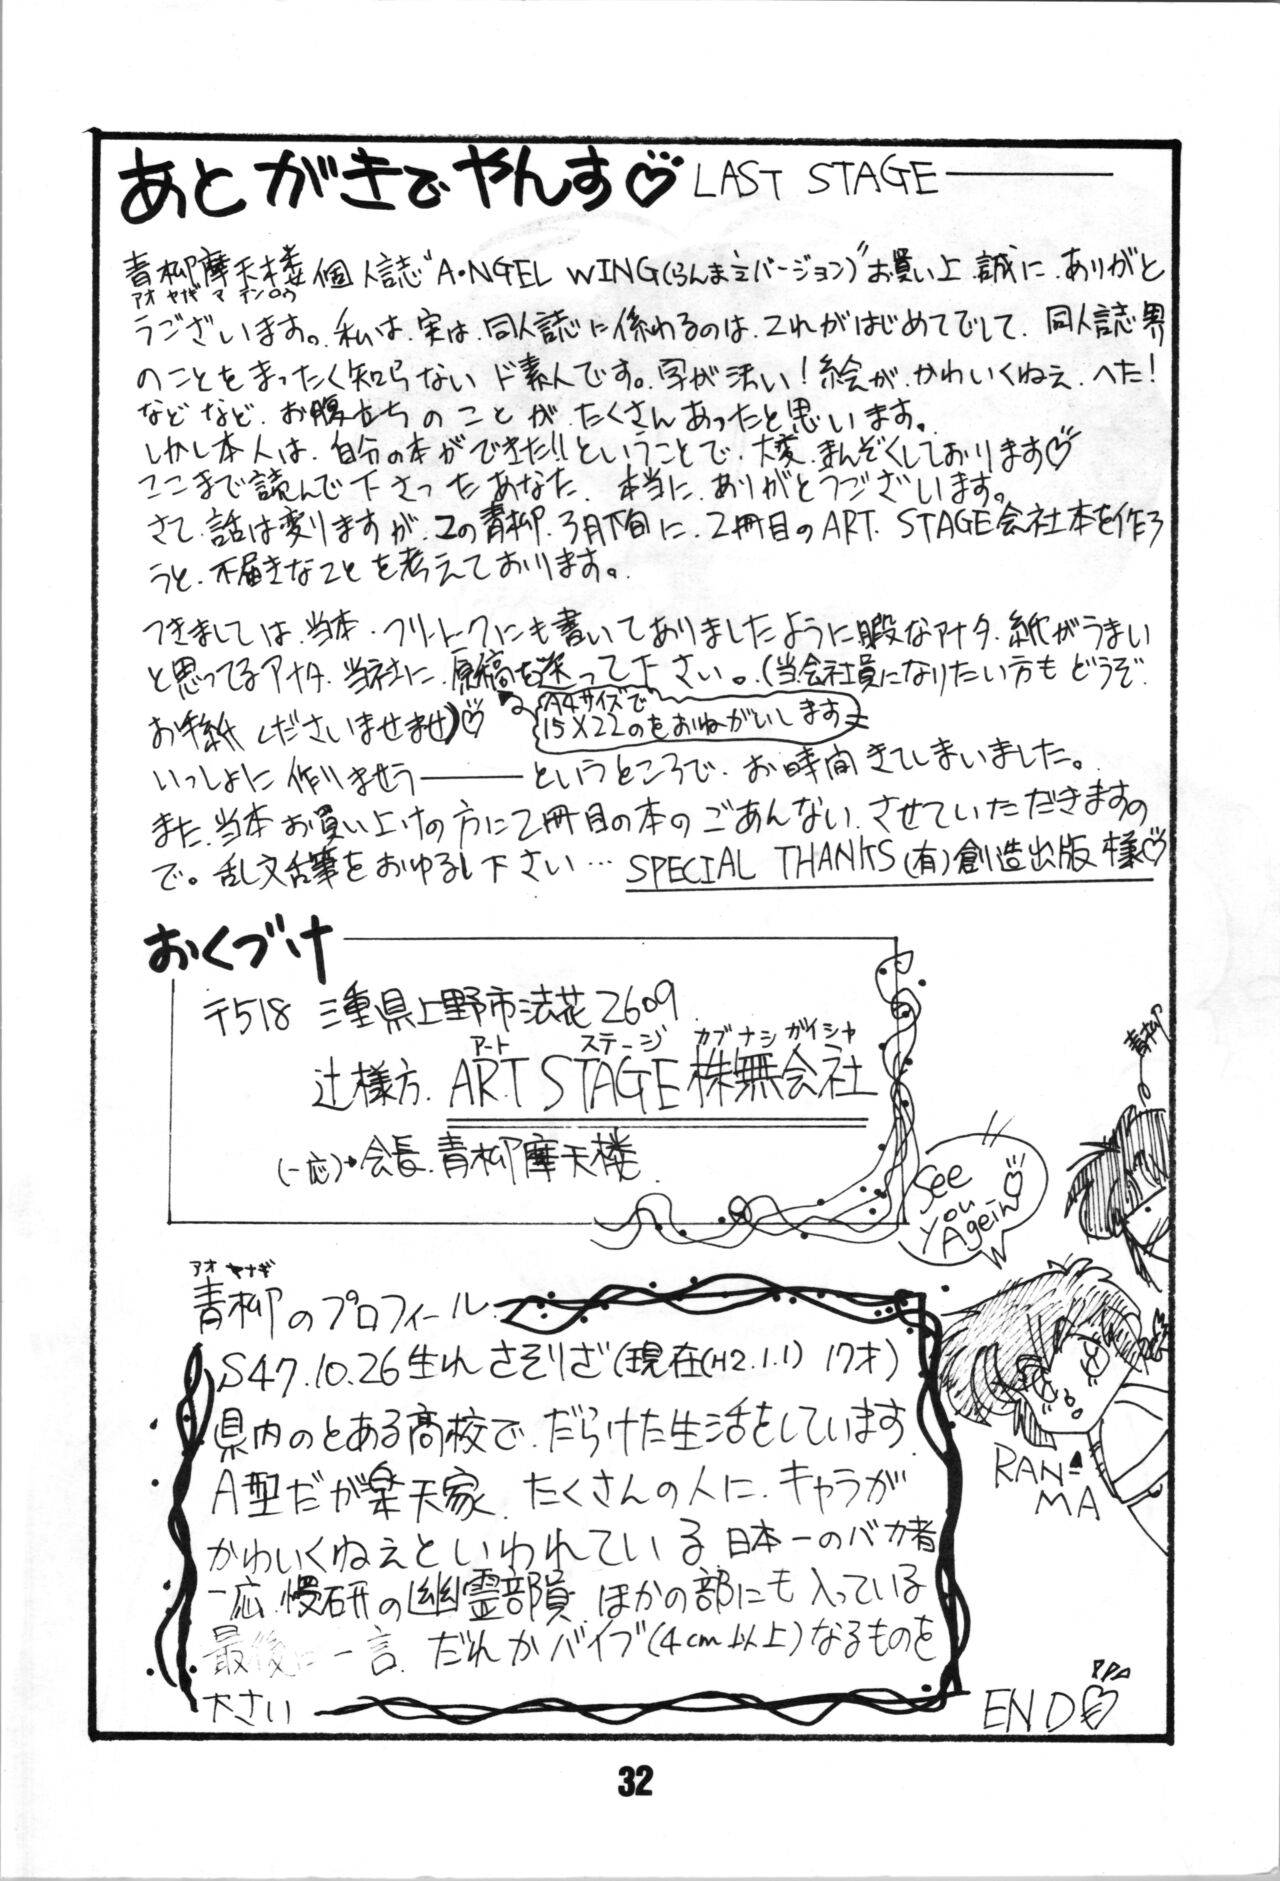 あとがきでやんす♡ LAST STAGE
青柳摩天楼個人誌“A・NGEL WING(らんま½バージョン)”お買い上、誠に、ありがと
アオ ヤナギ マ テンロウ
うございます。私は、実は、同人誌に係わるのは、これがはじめてでして、同人誌界
のことをまったく知らないド素人です。字が汚い！絵が、かわいくねぇ、へた！
などなど、お腹立ちのことが、たくさんあったと思います。
しかし本人は、自分の本ができた!!ということで、大変、まんぞくしております♡
ここまで読んで下さったあなた、本当に、ありがとうございます。
さて、話は変りますが、この青柳、3月下旬に、2冊目のART. STAGE会社本を作ろ
うと、不届きなことを考えております。
つきましては、当本・フリートークにも書いてありましたように暇なアナタ、紙がうまい
と思ってるアナタ、当社に、原稿を送って下さい。(当会社員になりたい方もどうぞ
お手紙くださいませませ)♡
A4サイズで
15×22のをおねがいします
いっしょに作りませう――というところで、お時間きてしまいました。
また、当本お買い上げの方に2冊目の本のごあんない、させていただきますの
で。乱文乱筆をおゆるし下さい… SPECIAL THANKS (有)創造出版様♡
おくづけ
〒518 三重県上野市法花2609
アート ステージ カブナシ ガイシャ
辻様方. ART STAGE 株無会社
(一応)・会長. 青柳摩天楼
青柳
See
You
Agein♡
アオ ヤナギ
青柳のプロフィール
S47.10.26生れ さそりざ(現在(H2.1.1) 17才)
県内のとある高校で、だらけた生活をしています
A型だが楽天家. たくさんの人に、キャラが
かわいくねぇといわれている 日本一のバカ者
一応、漫研の幽霊部員 ほかの部にも入っている
最後に一言. だれかバイブ(4cm以上)なるものを
下さい
RAN-
MA
END♡
32